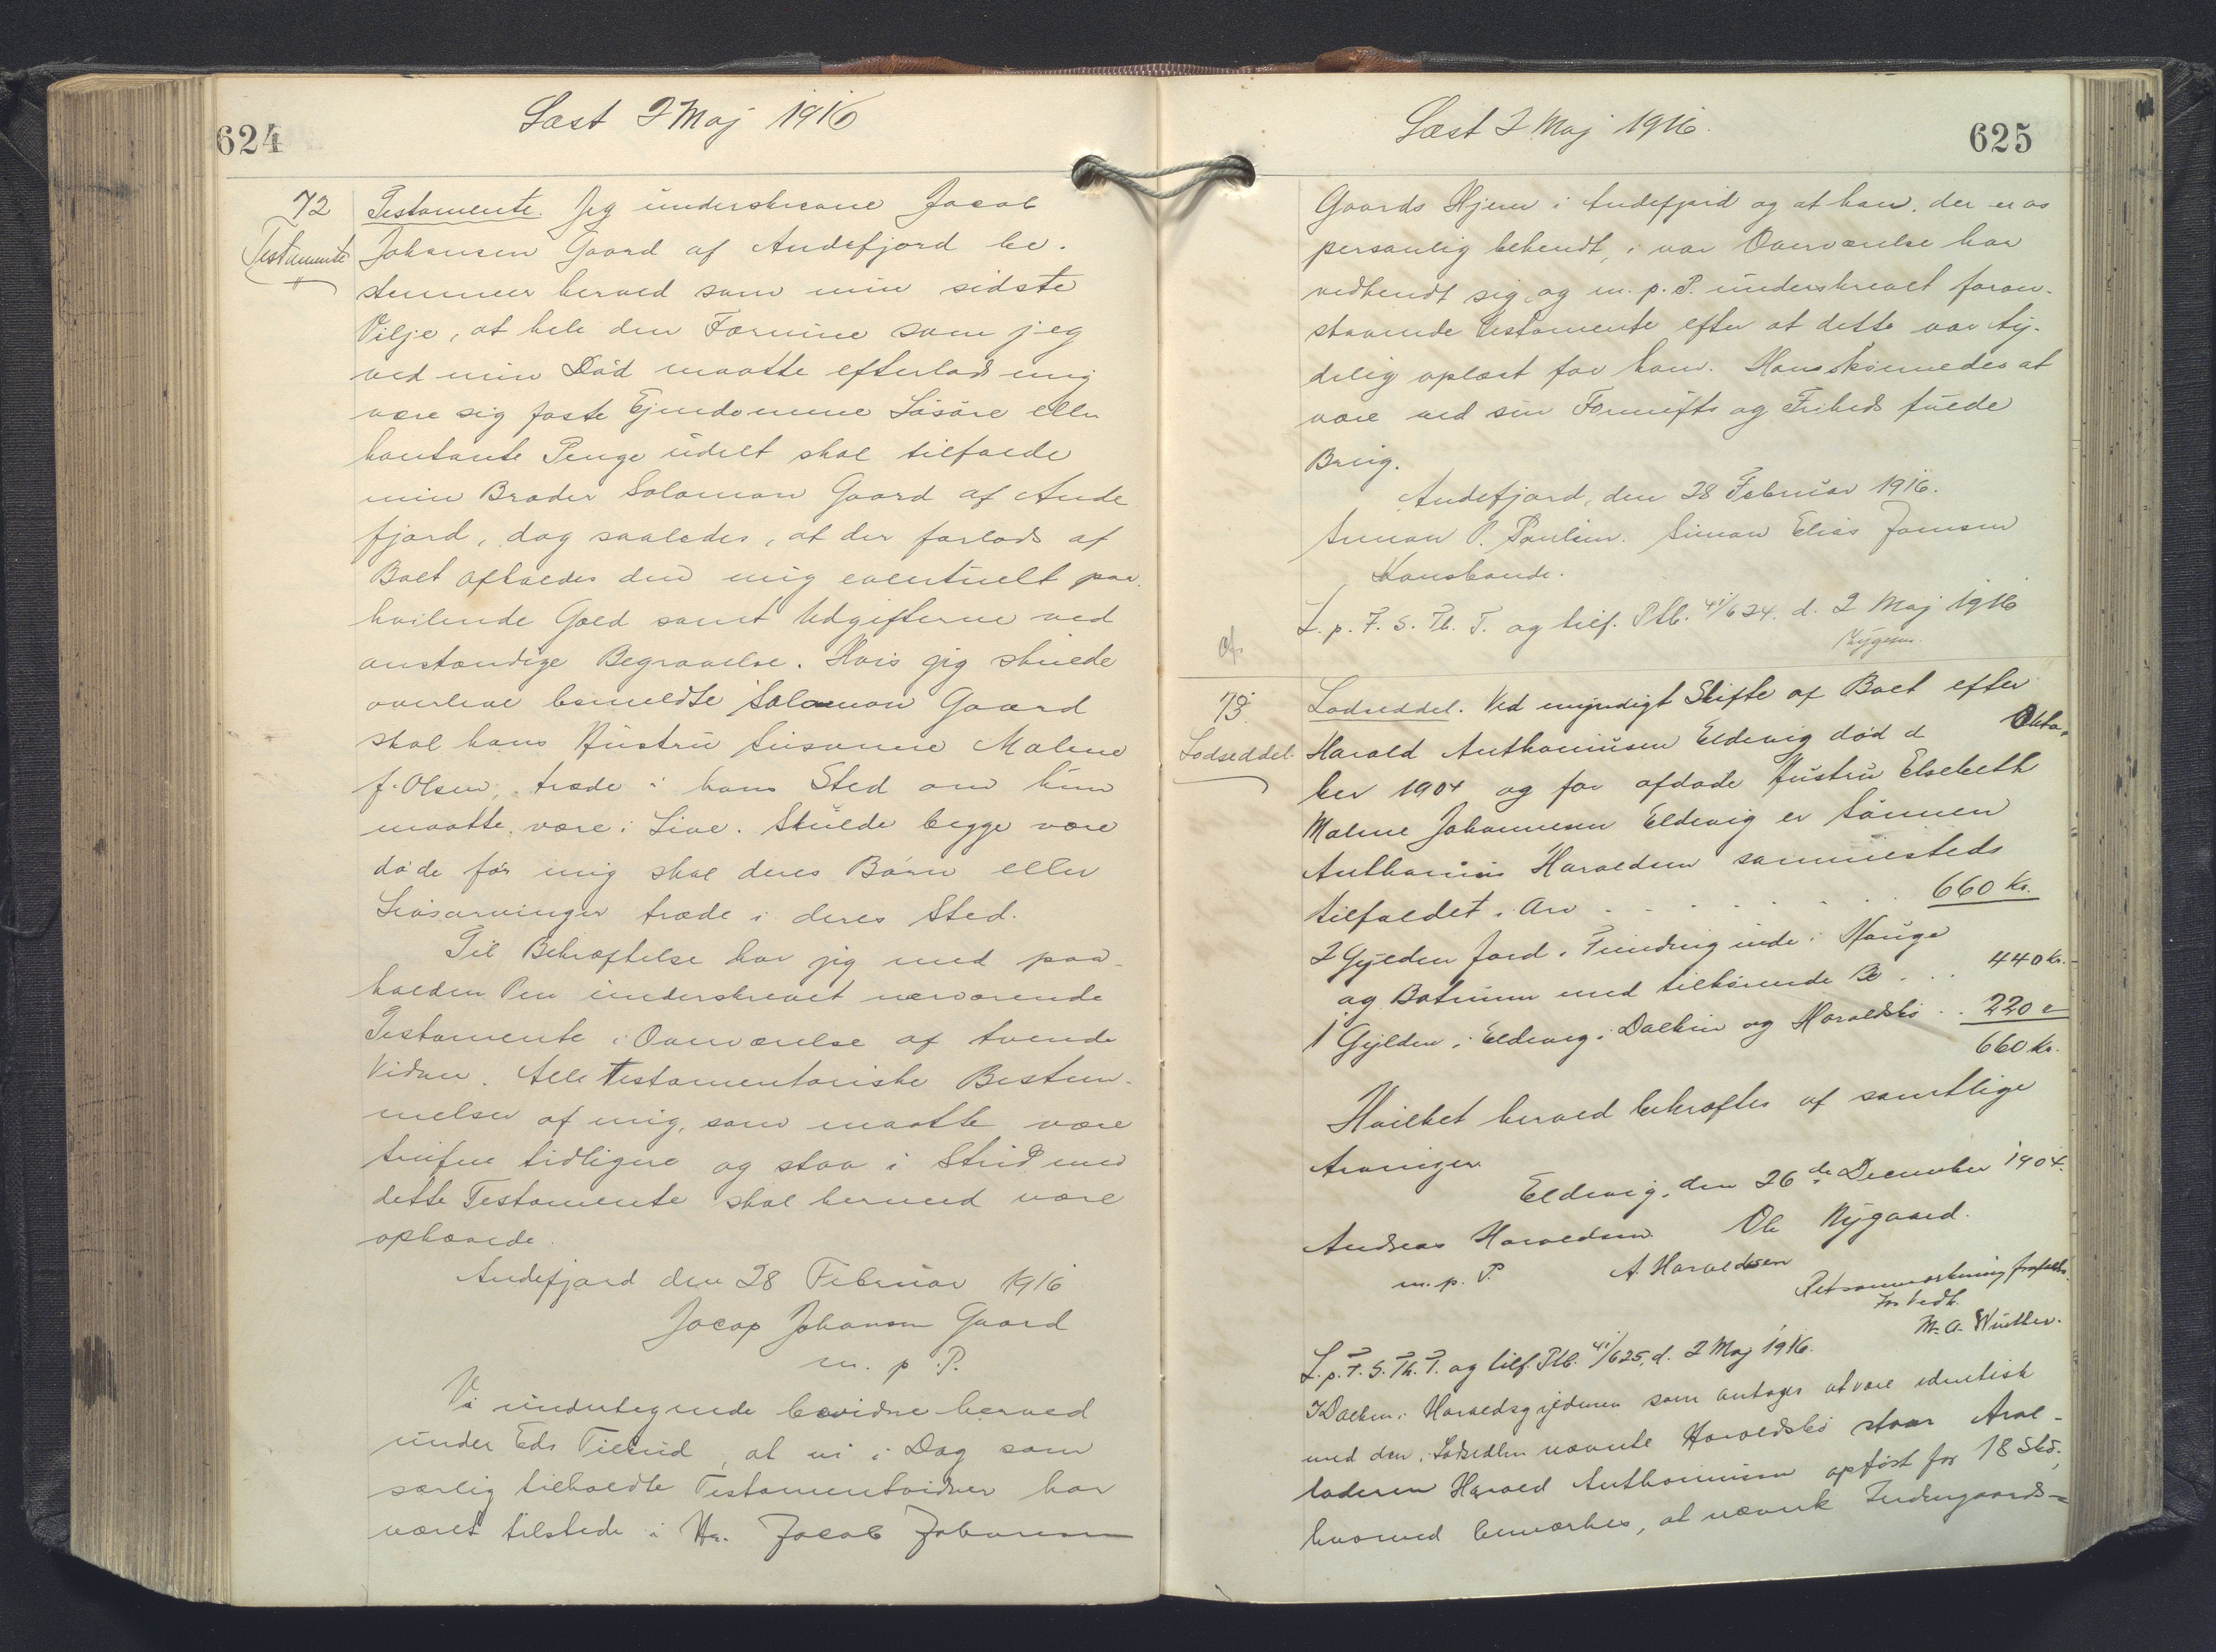 624
Læst 2 Maj 1916
72
Testamente
Testamente. Jeg underskrevne Jacob
Johansen Gaard af Andefjord be-
stemmer herved som min sidste
Vilje, at hele den Formue som jeg
ved min Død maatte efterlade mig
være sig faste Ejendomme Løsøre eller
kontante Penge udelt skal tilfalde
min Broder Salomon Gaard af Ande
fjord, dog saaledes, at der forlods af
Boet afholdes den mig eventuelt paa-
hvilende Gjæld samt Udgifterne ved
anstændige Begravelse. Hvis jeg skulde
overleve bemeldte Salomon Gaard
skal hans Hustru Susanne Malene
f. Olsen, træde i hans Sted om hun
maatte være i Live. Skulde begge være
døde før mig skal deres Børn eller
Livsarvinger træde i deres Sted.
Til Bekræftelse har jeg med paa-
holden Pen underskrevet nærværende
Testamente i Overværelse af tvende
Vidner. Alle Testamentariske Bestem-
melser af mig, som maatte være
trufne tidligere og staa i Strid med
dette Testamente skal hermed være
ophævede.
Andefjord den 28 Februar 1916
Jacop Johansen Gaard
m. p. P.
Vi undertegnede bevidne herved
under Eds Tilbud, at vi i Dag som
særlig tilkaldte Testamentvidner har
været tilstede i Hr. Jacob Johansen
625
Læst 2 Maj 1916.
Gaards Hjem i Andefjord og at han, der er os
personlig bekendt, i vor Overværelse har
vedkendt sig og m. p. P. underskrevet foran-
staaende Testamente efter at dette var ty-
delig oplæst for ham. Han skønnedes at
være ved sin Fornufts og Friheds fulde
Brug.
Andefjord, den 28 Februar 1916.
Simon P. Poulsen. Simon Elias Joensen
Kongsbonde.
L. p. F. S. Th. T. og tilf. Ptb. 41/624. d. 2 Maj 1916
af
73
Lodseddel.
Lodseddel. Ved myndigt Skifte af Boet efter
Harald Anthoniusen Eldevig død d Okto-
ber 1904 og før afdøde Hustru Elsebeth
Malene Johannesen Eldevig er Sønnen
Anthonius Haraldsen sammesteds
tilfaldet i Arv . . . . . . . 660 Kr.
2 Gylden Jord i Funding inde i Hauge
og Botnum med tilhørende Bø . . . 440 Kr.
1 Gylden i Eldevig i Dalkin og Haraldsbø . . 220 "
660 Kr.
Hvilket herved bekræftes af samtlige
Arvinger.
Eldevig, den 26de December 1904.
Andreas Haraldsen Ole Nygaard.
m. p. P. A. Haraldsen
Retsanmærkning frafaldes.
M. A. Winther.
L. p. F. S. Th. T. og tilf. Ptb. 41/625. d. 2 Maj 1916.
I Dalken i Haraldsgyldenen som antages at være identisk
med den i Lodsedlen nævnte Haraldsbø staar Arve-
laderen Harald Anthoniusen opført for 18 Skd.,
hvorved bemærkes, at nævnte Indengaards-